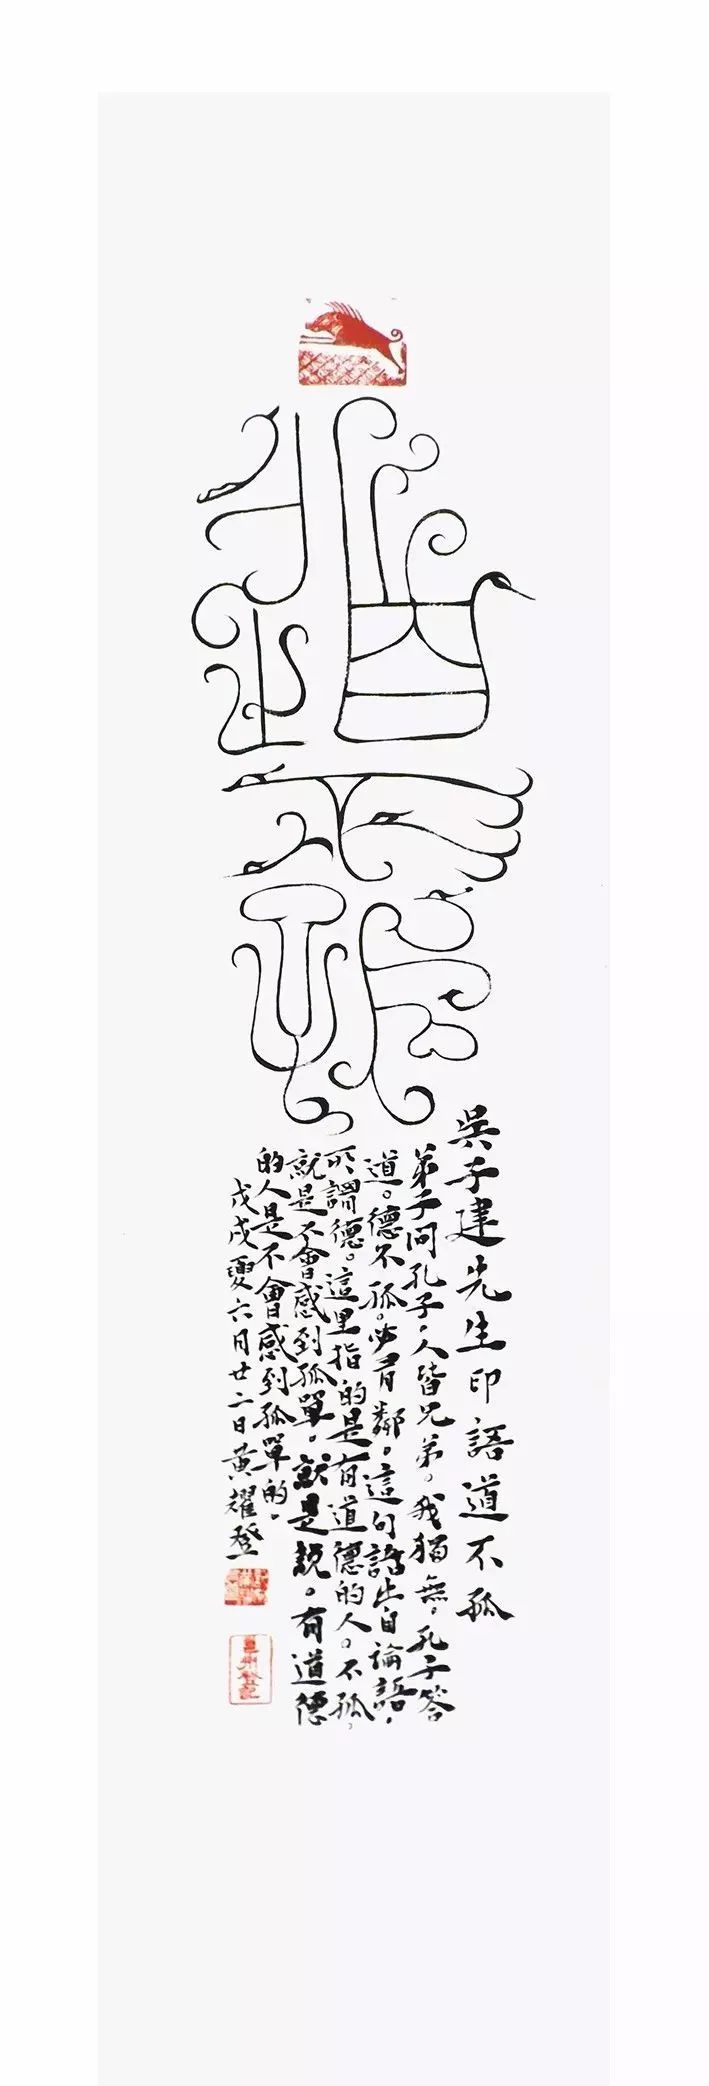 道不孤
吳子建先生印語道不孤
弟子問孔子，人皆兄弟。我獨無，孔子答
道。德不孤。必有鄰。這句語出自論語，
所謂德。這里指的是有道德的人。不孤，
就是不會感到孤單。就是說。有道德
的人是不會感到孤單的，
戊戌夏六月廿二日黃耀登